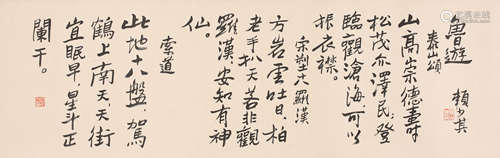 魯遊
賴少其
泰山頌
山高崇德壽
松茂亦澤民登
臨觀滄海可以
振衣襟
宋塑十八羅漢
方岩雲吐日柏
老手扒天若非觀
羅漢安知有神
仙。
索道
此地十八盤駕
鶴上南天天街
宜眠早星斗正
闌干。